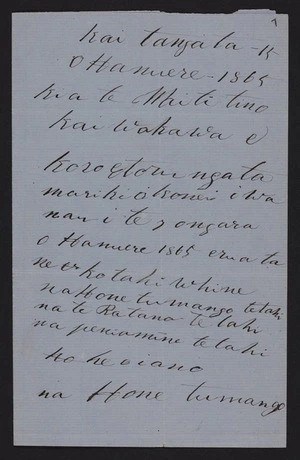 Kai tangata - 15
O Hanuere - 1865
Kia te Maiti tino
Kai wakawa o
mariki i konei i wa
nau i te 7 o ngara
o Hanuere 1865 erua ta
ne ko tahi whine
na Hone tumango te tahi
na te Ratano te tahi
na peniamine te tahi
ko heoiano
na Hone tumango